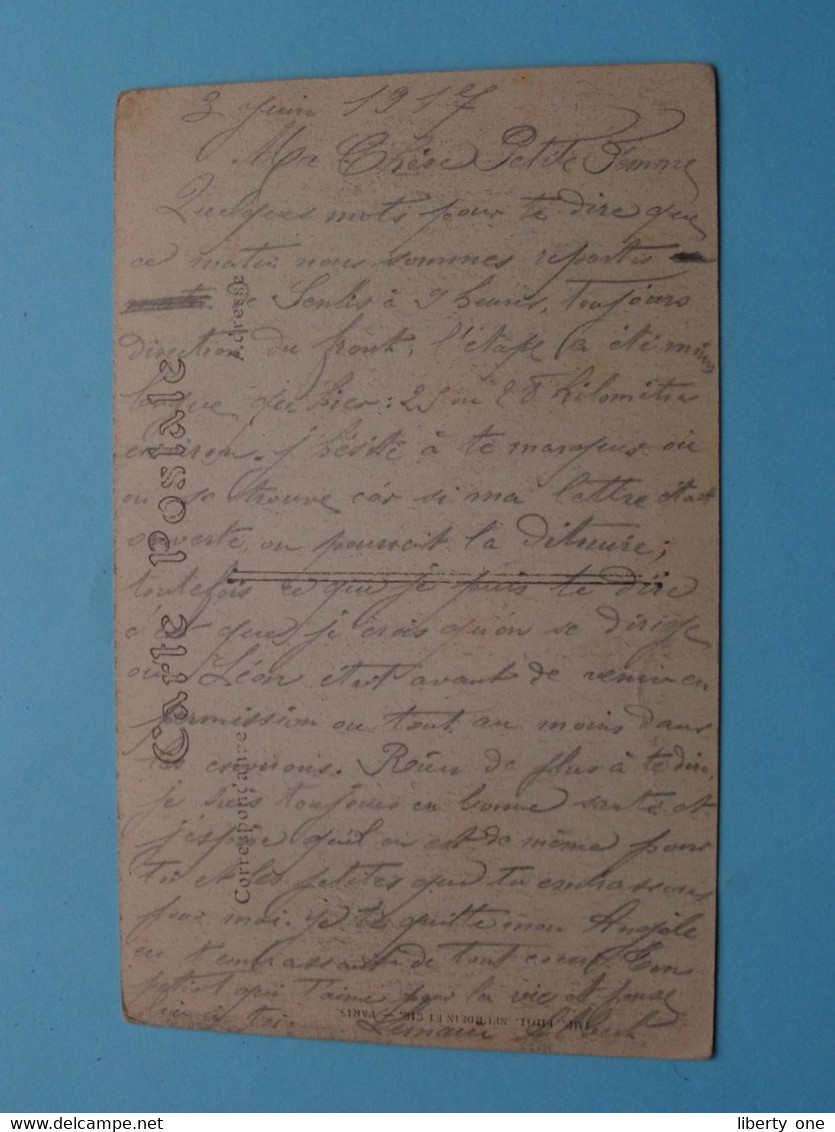 3 juin 1917
Ma Chère Petite Femme
Quelques mots pour te dire que
ce matin nous sommes repartis
de Senlis à 9 heures, toujours
direction du front, l'étape a été moins
longue qu'hier: 25 ou 28 kilomètres
environ. J'hésite à te marquer où
on se trouve car si ma lettre était
ouverte, on pourrait la détruire;
toutefois ce que je puis te dire
c'est que je crois qu'on se dirige
où Léon était avant de venir en
permission ou tout au moins dans
les environs. Rien de plus à te dire,
je suis toujours en bonne santé et
j'espère qu'il en est de même pour
toi et les petites que tu embrasseras
pour moi. Je te quitte mon Angèle
en t'embrassant de tout coeur. Ton
petiot qui t'aime pour la vie et pense
bien à toi.
Carte Postale
Correspondance
Adresse
IMP. PHOT. NEURDEIN ET CIE. — PARIS.
www.delcampe.net
liberty one